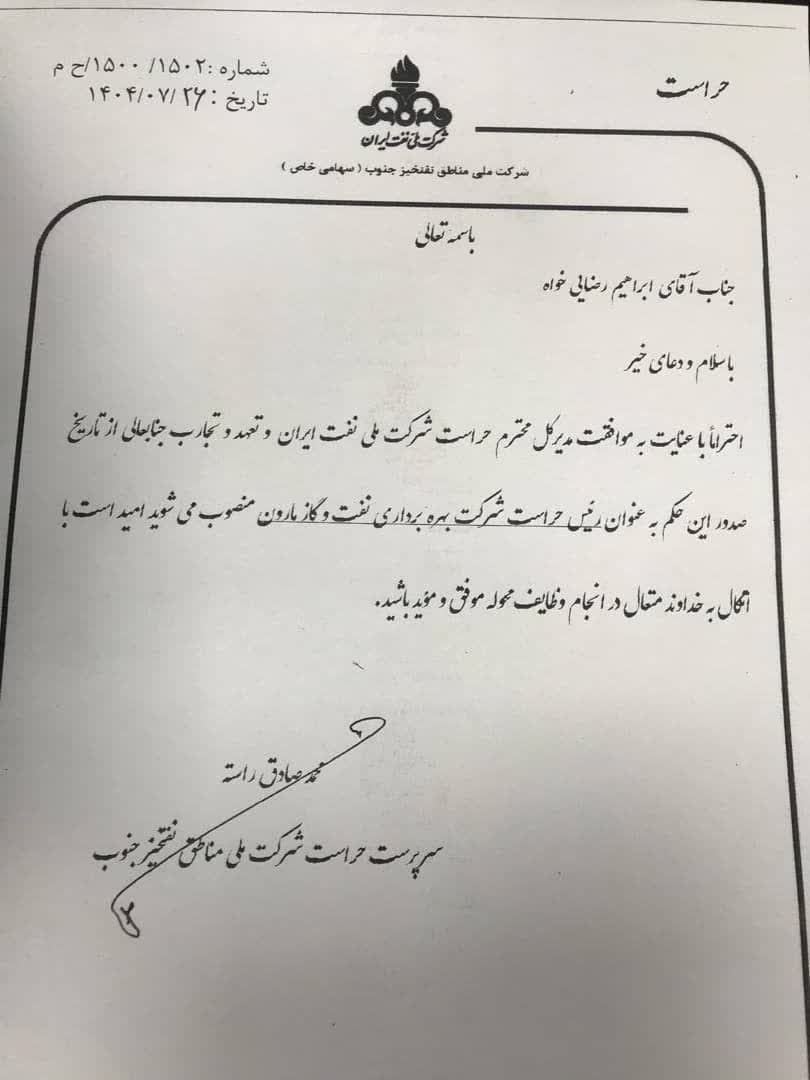 حراست
شماره :۱۵۰۲/ ۱۵۰۰/ح م
تاریخ : ۱۴۰۴/۰۷/۲۶
شرکت ملی نفت ایران
شرکت ملی مناطق نفتخیز جنوب ( سهامی خاص )
باسمه تعالی
جناب آقای ابراهیم رضایی خواه
با سلام و دعای خیر
احتراماً با عنایت به موافقت مدیرکل محترم حراست شرکت ملی نفت ایران و تعهد و تجارب جنابعالی از تاریخ
صدور این حکم به عنوان رئیس حراست شرکت بهره برداری نفت و گاز مارون منصوب می شوید امید است با
اتکال به خداوند متعال در انجام وظایف محوله موفق و مؤید باشید.
محمد صادق راسته
سرپرست حراست شرکت ملی مناطق نفتخیز جنوب